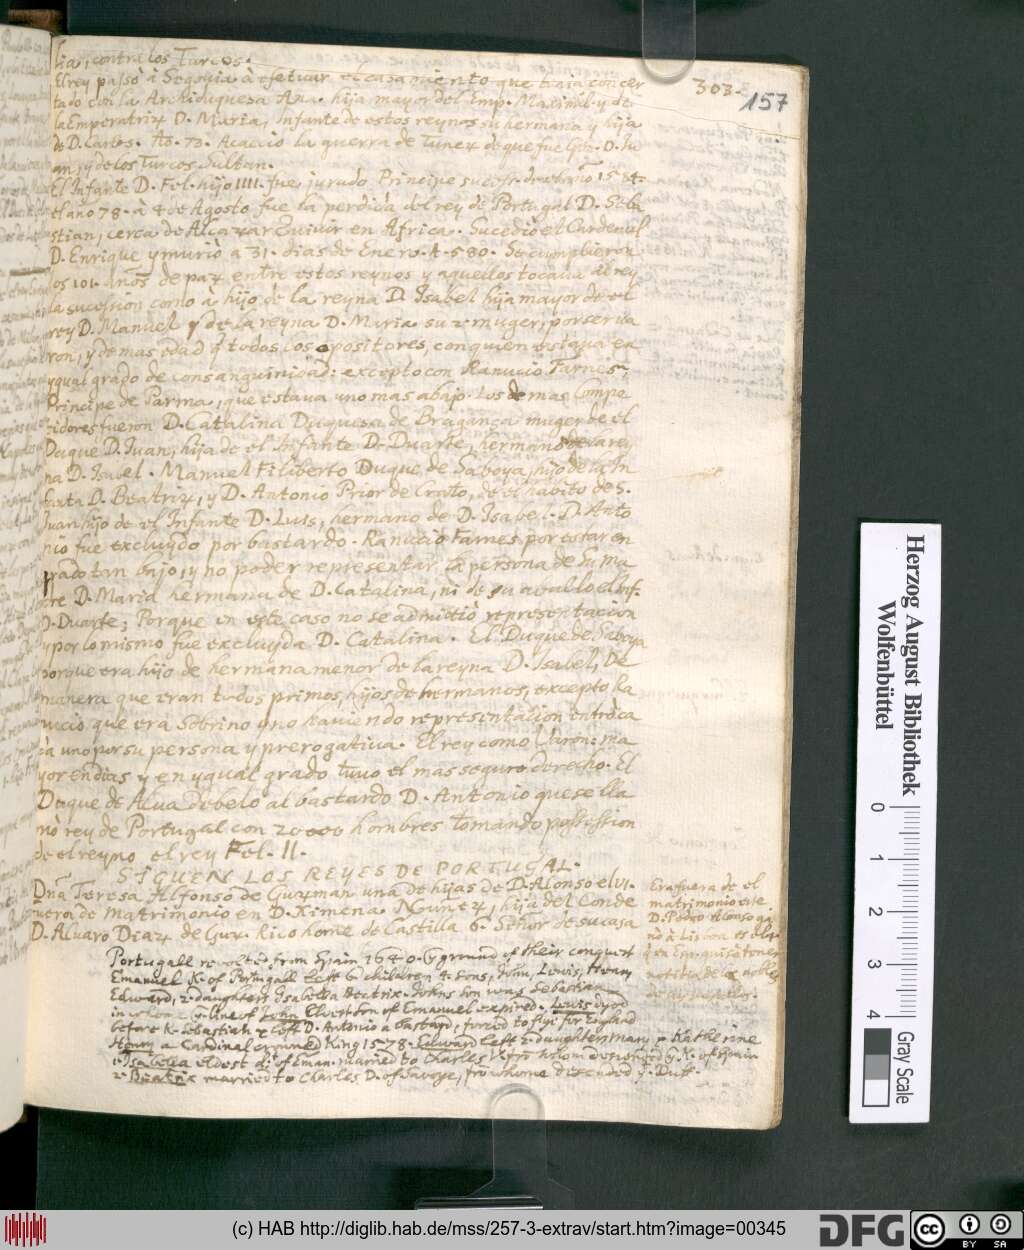 303.
157
lia, contra los Turcos.
El rey passò à Segouia à efetuar el casamiento que hauia concer
tado con la Archiduquesa Ana. hija mayor del Emp. Maximil. y de
la Emperatriz D. Maria, Infante de estos reynos su hermana y hija
de D. Carlos. Aō. 73. Acaeciò la guerra de Tunez de que fue D. Iu
an, y de los Turcos Sultan.
El Infante D. Fel. hijo IIII. fue jurado Principe año 1584.
el año 78. à 4 de Agosto fue la perdida del rey de Portugal D. Seba
stian, cerca de Alcazarquiuir en Africa. Sucediò el Cardenal
D. Enrique y muriò a 31. dias de Enero. 1580. Se cumplieron
los 101. años de paz entre estos reynos y aquellos tocaua al rey
la sucession como à hijo de la reyna D. Isabel hija mayor de el
rey D. Manuel y de la reyna D. Maria su 2. muger, por ser ua
ron, y de mas edad q̄ todos los opositores, con quien estaua en
ygual grado de consanguinidad: excepto con Ranucio Farnes,
Principe de Parma, que estaua uno mas abajo. Los de mas Compe
tidores fueron D. Catalina Duquesa de Bragança muger de el
Duque D. Iuan, hija de el Infante D. Duarte, hermano de la rey
na D. Isabel. Manuel Filiberto Duque de Saboya, hijo de la In
fanta D. Beatriz, y D. Antonio Prior de Crato, de el habito de S.
Iuan hijo de el Infante D. Luis, hermano de D. Isabel. D. Anto
nio fue excluydo por bastardo. Ranucio Farnes por estar en
grado tan bajo, y no poder representar la persona de su ma
dre D. Maria hermana de D. Catalina, ni de su aballo el Inf.
D. Duarte; Porque en este caso no se admitiò representacion
y por lo mismo fue excluyda D. Catalina. El Duque de Saboya
porque era hijo de hermana menor de la reyna D. Isabel, De
manera que eran todos primos, hijos de hermanos, excepto Ra
nucio que era Sobrino y no hauiendo representacion entro ca
da uno por su persona y prerogatiua. El rey como Varon: ma
yor en dias y en ygual grado tuuo el mas seguro derecho. El
Duque de Alua debelò al bastardo D. Antonio que se lla
mò rey de Portugal con 20000 hombres tomando possession
de el reyno el rey Fel. II.
SIGUEN LOS REYES DE PORTUGAL.
Dña Teresa Alfonso de Guzman una de hijas de D. Alonso el VI.
fuera de matrimonio en D. Ximena Nuñez, hija del Conde
D. Aluaro Diaz de Guz. Rico home de Castilla 6. Señor de su casa
Era fuera de el
matrimonio este
D. Pedro Alonso ga
nò à Lisboa
noticia de los nobles
de su
Portugall revolted from Spain 1640. Yͤ ground of their conquest
Emanuel K. of Portugall left 6 children 4. sons, John, Lewis, Henry
Edward, 2. daughters Isabella Beatrix. Johns son was Sebastian
in whom yͤ line of John Eldest son of Emanuel expired. Lewis dyed
before K. Sebastian & left D. Antonio a bastard, forced to flye for England
Henry a Cardinal crowned King 1578. Edward left 2. daughters Mary & Katherine
1. Isabella eldest d. of Eman. married to Charles V. frō whom descended yͤ K. of Spain
2. Beatrix married to Charles D. of Savoye, frō whome descended yͤ Duk.
Herzog August Bibliothek
Wolfenbüttel
0 1 2 3 4
Gray Scale
(c) HAB http://diglib.hab.de/mss/257-3-extrav/start.htm?image=00345
DFG
cc BY SA